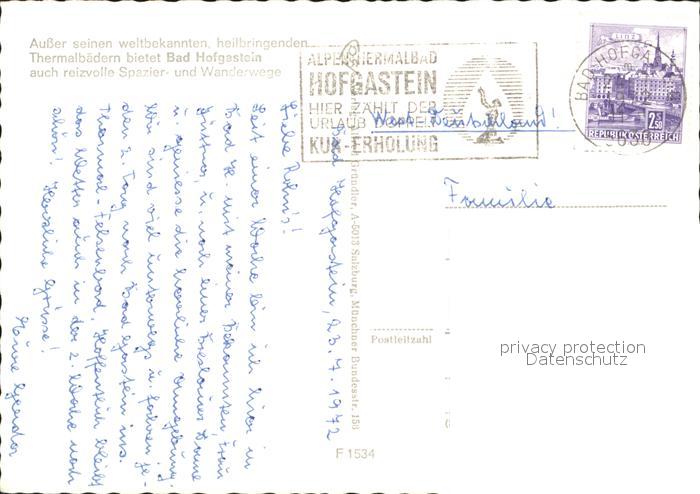 Außer seinen weltbekannten, heilbringenden
Thermalbädern bietet Bad Hofgastein
auch reizvolle Spazier- und Wanderwege
ALPENTHERMALBAD
HOFGASTEIN
HIER ZÄHLT DER
URLAUB DOPPELT
KUR-ERHOLUNG
LINZ
BAD HOFGA
REPUBLIK ÖSTERREICH
2.50
West Deutschland!
Familie
Bad Hofgastein, 23. 7. 1972
Liebe
Seit einer Woche bin ich hier in
Bad H. mit meiner Bekannten, Frau
u. noch einer Dame
u. geniesse die herrliche Umgebung.
Wir sind viel unterwegs u. fahren je-
den 2. Tag nach Bad Gastein ins
Thermal-Felsenbad. Hoffentlich bleibt
das Wetter auch in der 2. Woche noch
schön! Herzliche Grüsse!
Gründler, A-5013 Salzburg, Münchner Bundesstr. 158
Postleitzahl
F 1534
privacy protection
Datenschutz